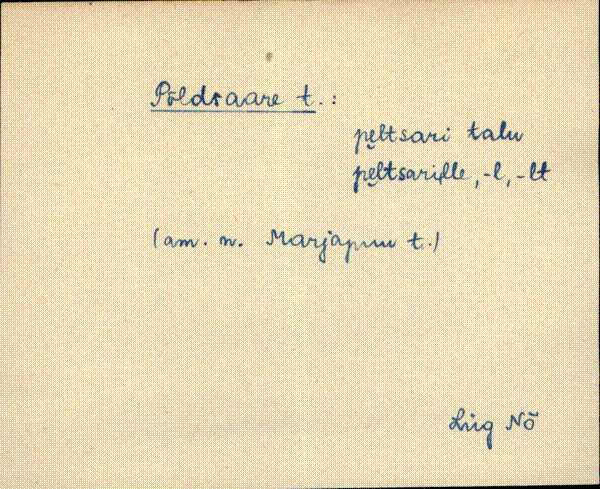 Põldsaare t.:
pe̮ltsari talu
pe̮ltsarille, -l, -lt
(am. n. Marjapuu t.)
Lüg Nõ